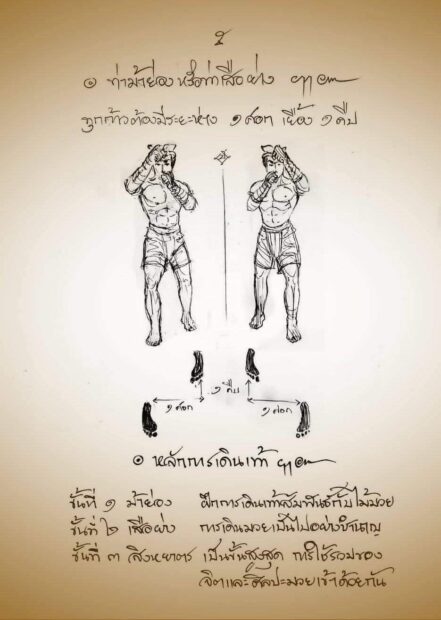 ๏ ท่าม้าย่อง หรือท่าเสือย่าง ๚๛
ทุกก้าวต้องมีระยะห่าง ๑ ศอก เยื้อง ๑ คืบ
๑ คืบ
๑ ศอก ๑ ศอก
๏ หลักการเดินเท้า ๚๛
ขั้นที่ ๑ ม้าย่อง ฝึกการเดินเท้าสัมพันธ์กับไม้มวย
ขั้นที่ ๒ เสือย่าง การเดินมวยเป็นไปอย่างชำนาญ
ขั้นที่ ๓ สิงหยาตร เป็นขั้นสูงสุด การใช้รวมของ
จิตและศิลปะมวยเข้าด้วยกัน